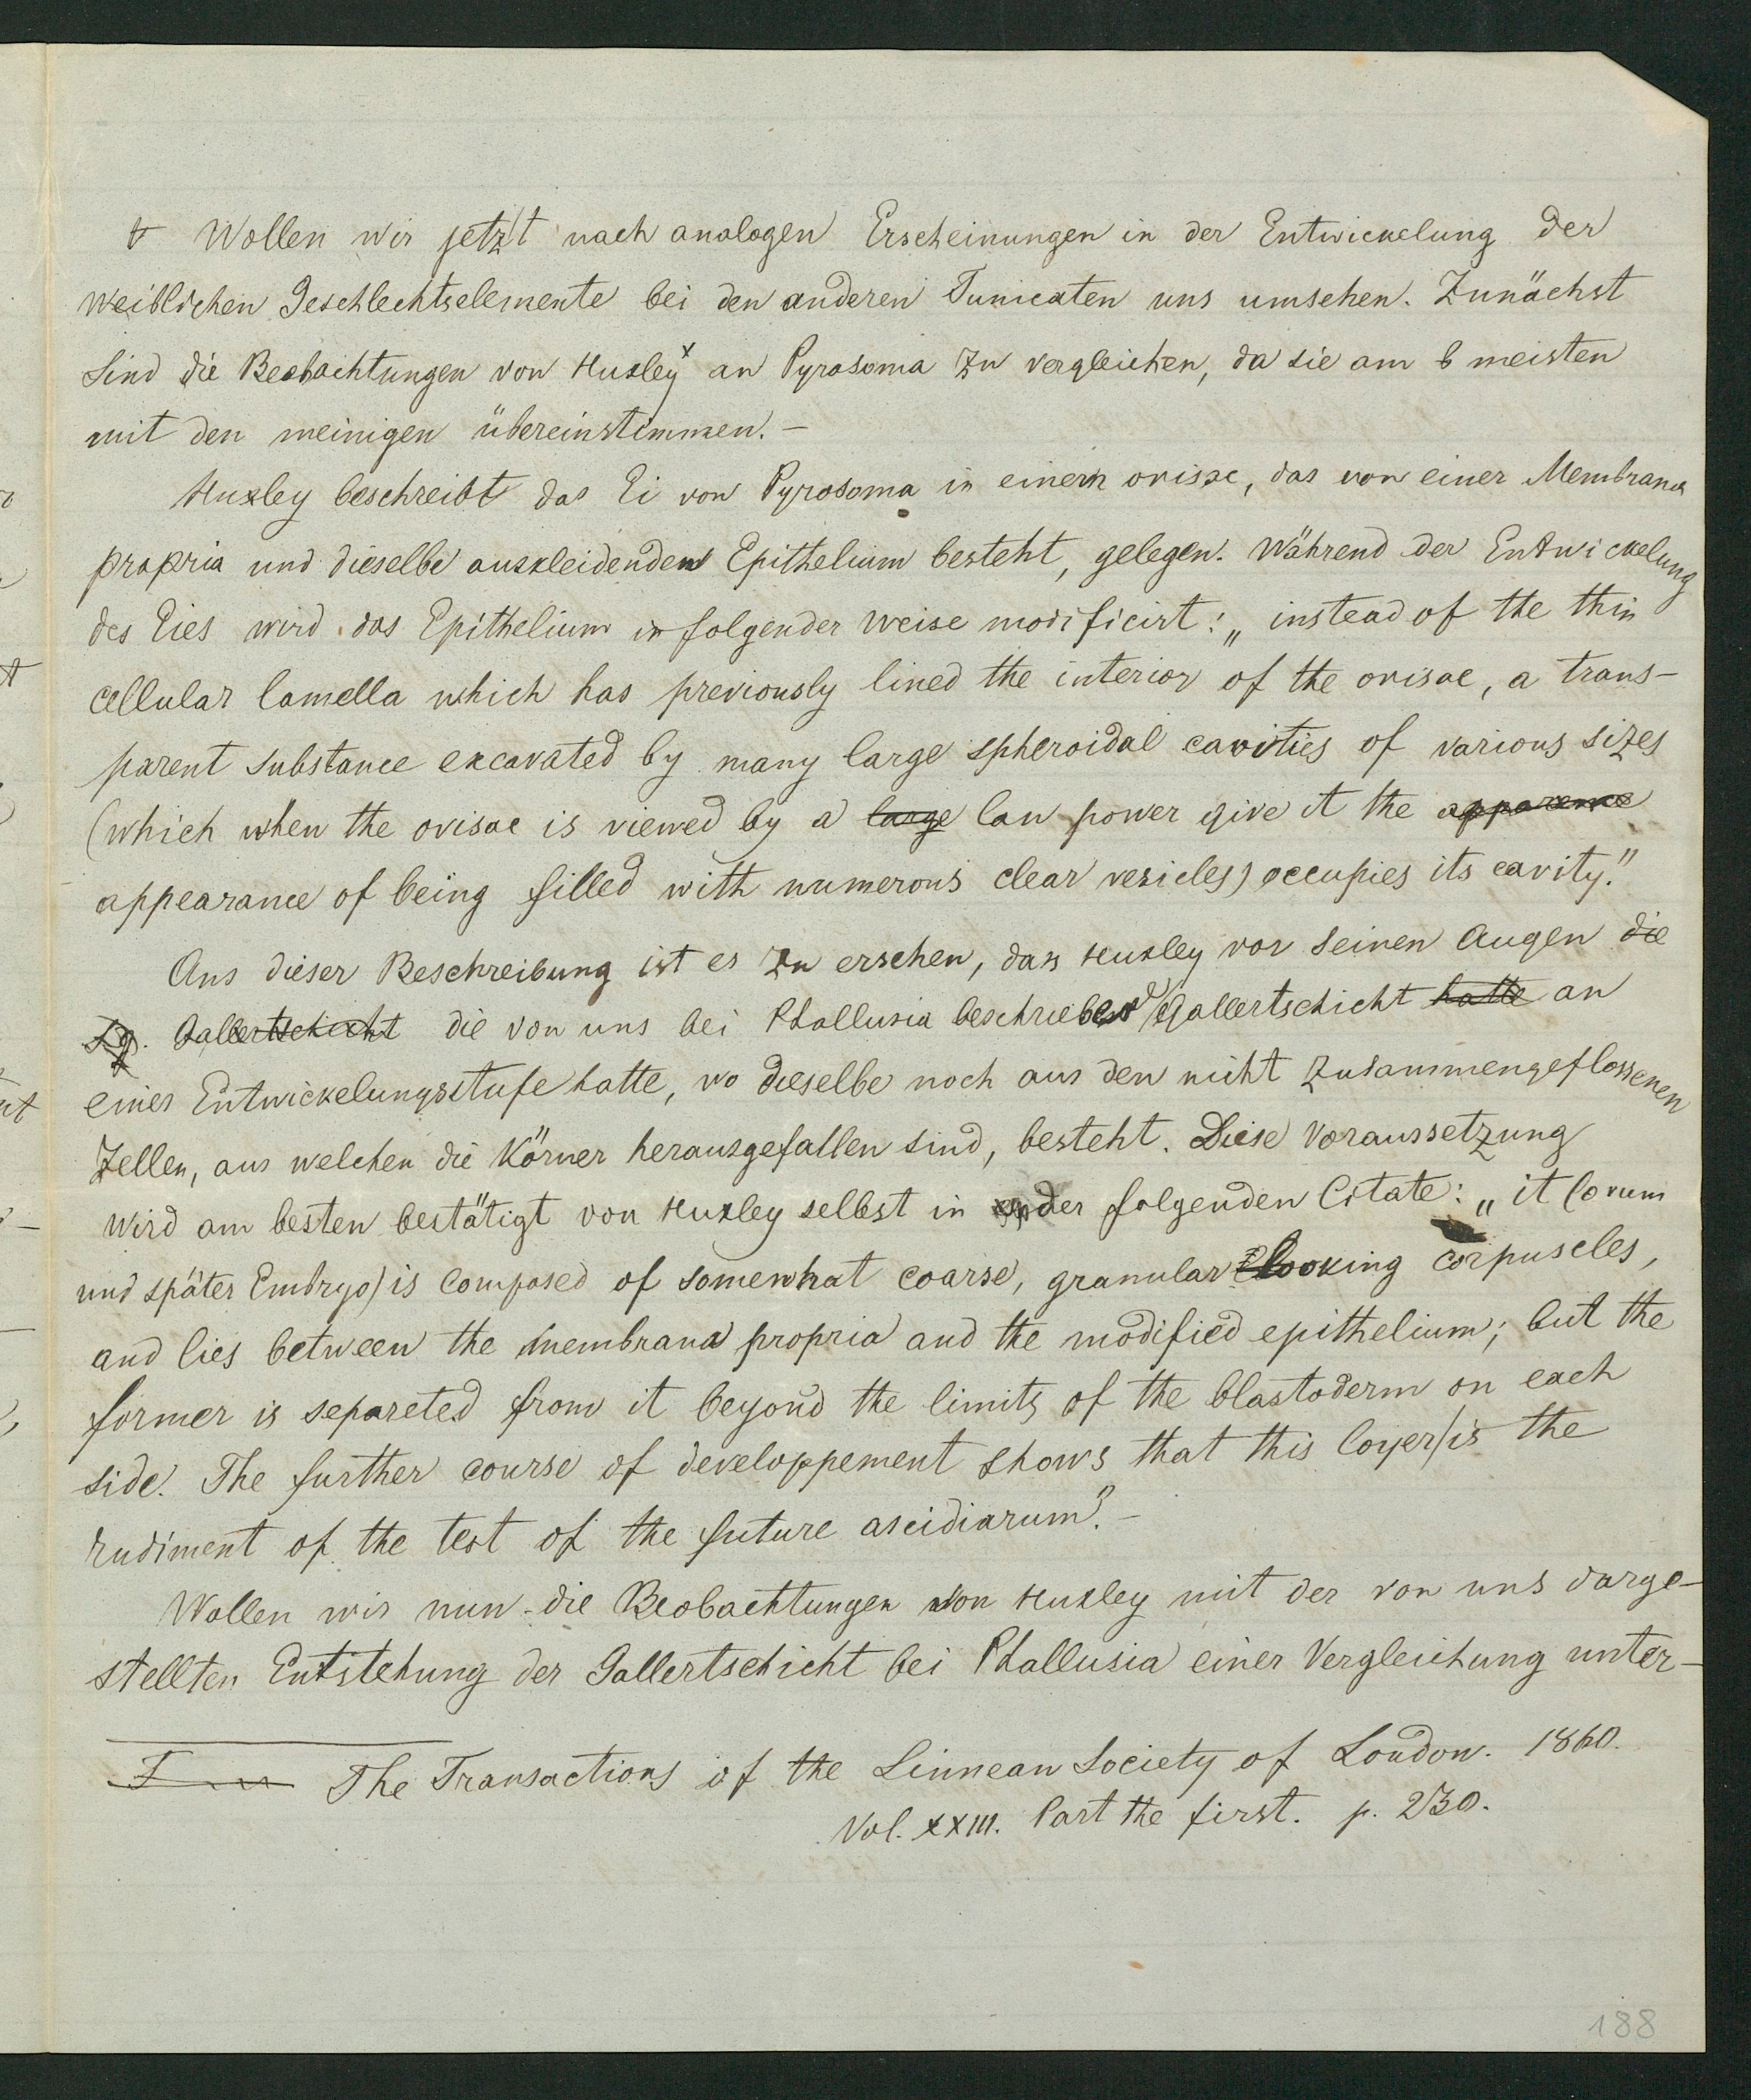 Wollen wir jetzt nach analogen Erscheinungen in der Entwickelung der
weiblichen Geschlechtselemente bei den anderen Tunicaten uns umsehen. Zunächst
sind die Beobachtungen von Huxley x an Pyrosoma zu vergleichen, da sie am meisten
mit den meinigen übereinstimmen. –
Huxley beschreibt das Ei von Pyrosoma in einem ovisac, das von einer Membrana
propria und dieselbe auskleidenden Epithelium besteht, gelegen. Während der Entwickelung
des Eies wird das Epithelium in folgender Weise modificirt: „instead of the thin
cellular lamella which has previously lined the interior of the ovisac, a trans-
parent substance excavated by many large spheroidal cavities of various sizes
(which when the ovisac is viewed by a large low power give it the apparence
appearance of being filled with numerous clear vesicles) occupies its cavity."
Aus dieser Beschreibung ist es zu ersehen, dass Huxley vor seinen Augen die
Sg. Gallertschicht die von uns bei Phallusia beschriebene Gallertschicht hatte an
einer Entwickelungsstufe hatte, wo dieselbe noch aus den nicht zusammengeflossenen
Zellen, aus welchen die Körner herausgefallen sind, besteht. Diese Voraussetzung
wird am besten bestätigt von Huxley selbst in der folgenden Citate: „it (ovum
und später Embryo) is composed of somewhat coarse, granular looking corpuscles,
and lies between the membrana propria and the modified epithelium; but the
former is separeted from it beyond the limits of the blastoderm on each
side. The further course of developpement shows that this layer is the
rudiment of the test of the future ascidiarum". –
Wollen wir nun die Beobachtungen von Huxley mit der von uns darge-
stellten Entstehung der Gallertschicht bei Phallusia einer Vergleichung unter-
The Transactions of the Linnean Society of London. 1860.
Vol. XXIII. Part the first. p. 230.
188